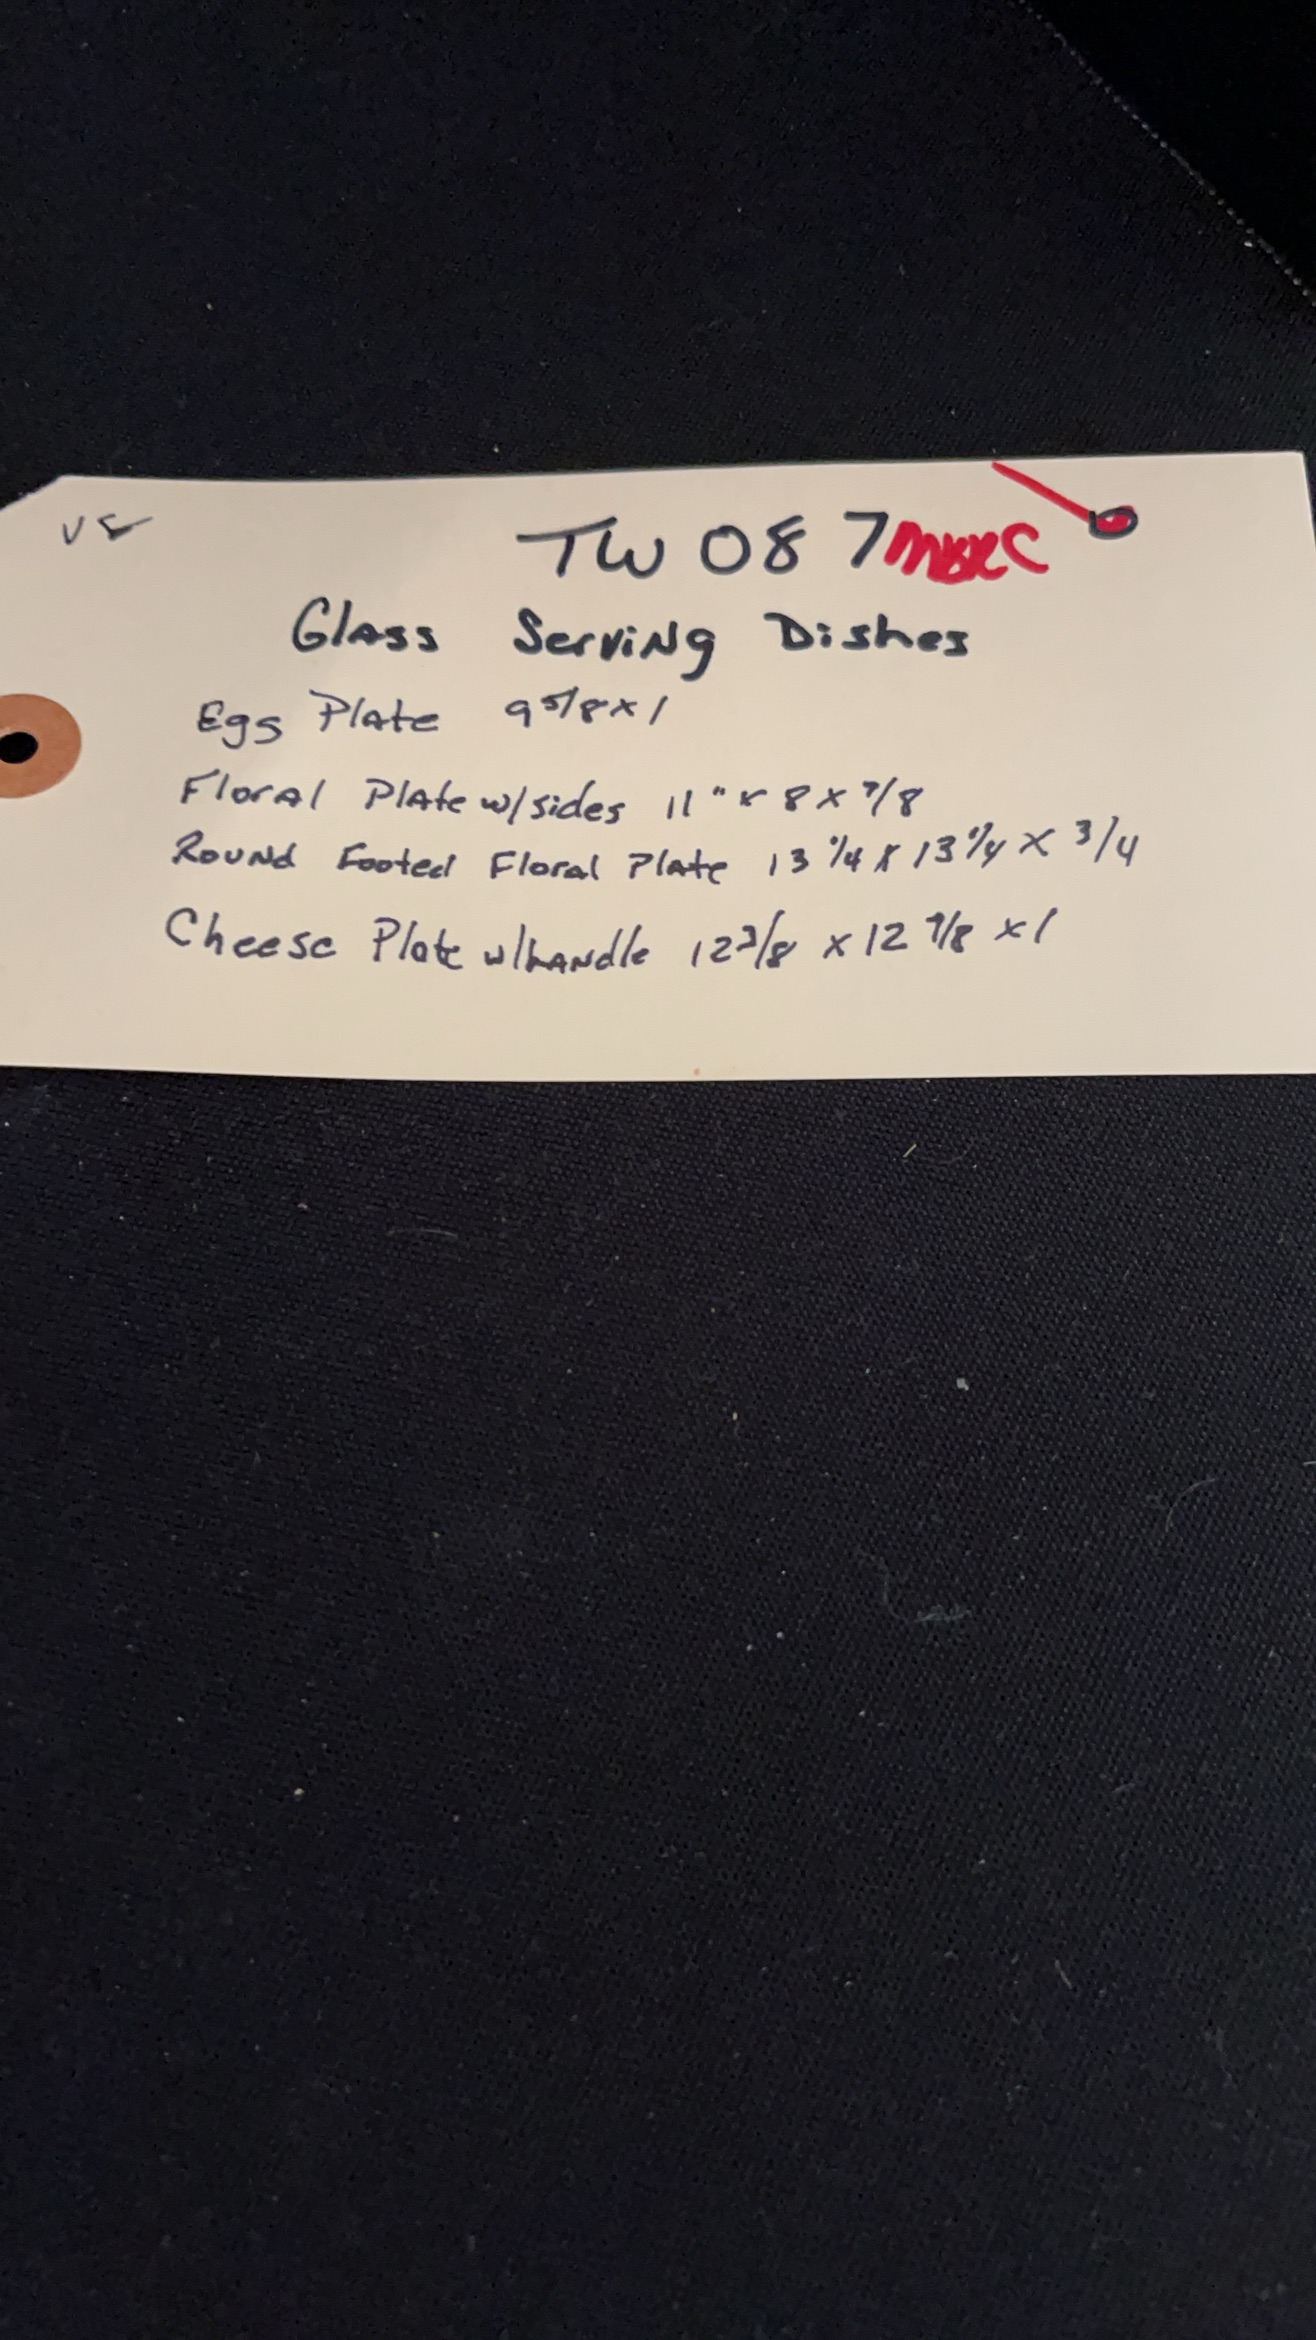 VE
TW 08 7
Glass Serving Dishes
Eggs Plate 9 5/8 x 1
Floral Plate w/sides 11" x 8 x 7/8
Round Footed Floral Plate 13 1/4 x 13 1/4 x 3/4
Cheese Plate w/handle 12 3/8 x 12 7/8 x 1